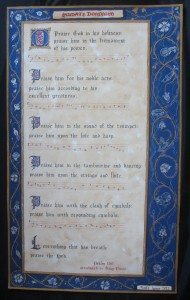 Praise God in his holiness
praise him in the firmament
of his power.
Praise him for his noble acts
praise him according to his
excellent greatness
Praise him in the sound of the trumpet
praise him upon the lute and harp
Praise him in the
praise him upon the strings and flute
Praise him with the clash of cymbals
praise him with resounding cymbals
Let everything that has breath
praise the